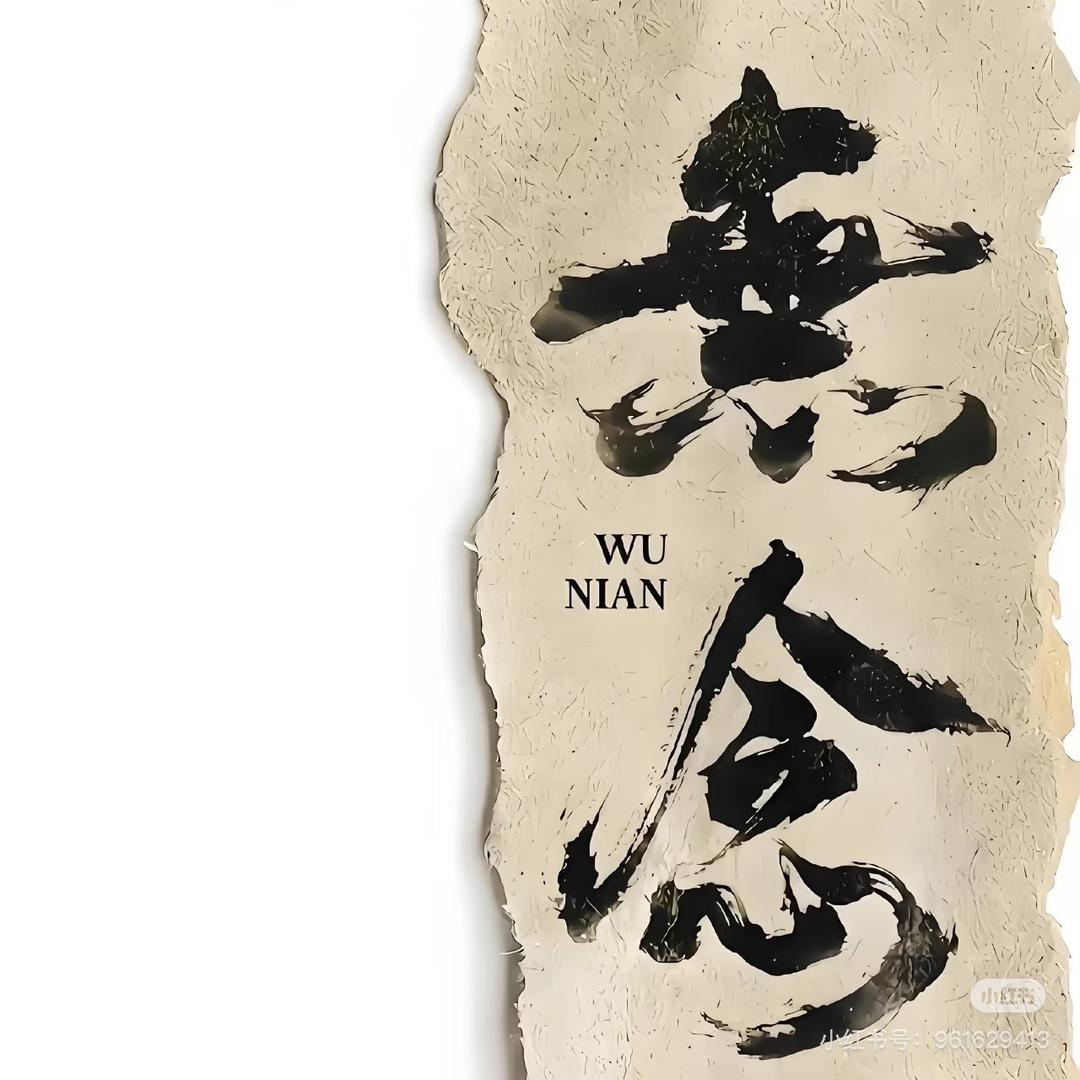 無念
WU
NIAN
小红书
小红书号：961629413